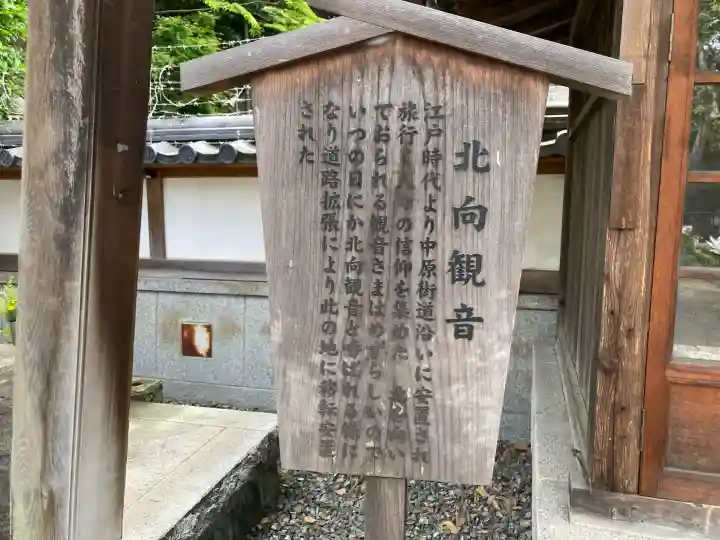 北向観音
江戸時代より中原街道沿いに安置され
旅行く人々の信仰を集めた 北の向い
ておられる観音さまはめずらしいので
いつの日にか北向観音と呼ばれる様に
なり道路拡張により此の地に移転安置
された